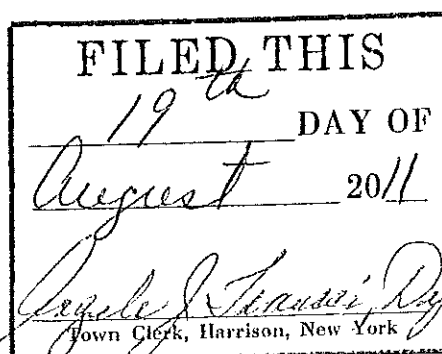 FILED THIS
19th DAY OF
August 2011
J.
Town Clerk, Harrison, New York